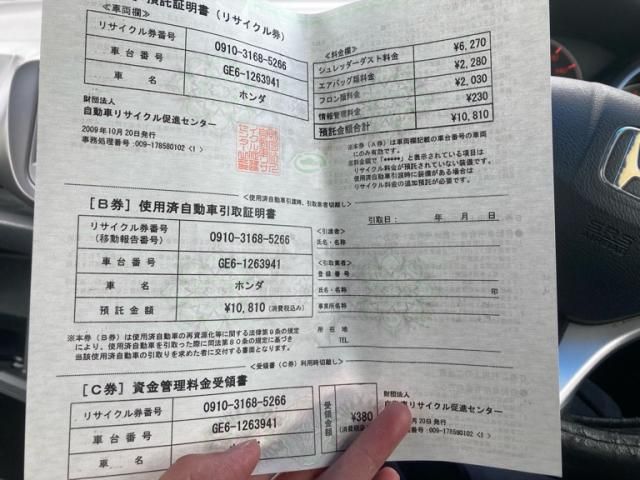 預託証明書(リサイクル券)
<車両欄>
リサイクル券番号 0910-3168-5266
車台番号 GE6-1263941
車名 ホンダ
財団法人
自動車リサイクル促進センター
2009年10月20日発行
事務処理番号:009-178580102<I>
<料金欄>
シュレッダーダスト料金 ¥6,270
エアバッグ類料金 ¥2,280
フロン類料金 ¥2,030
情報管理料金 ¥230
預託金額合計 ¥10,810
※本券(A券)は車両欄記載の車台番号の車両
にのみ有効です。
※料金欄で「*****」と表示されている項目は
リサイクル料金が預託されていない装備です。
使用済自動車引渡時に装備がある場合は
リサイクル料金の追加預託が必要です。
<使用済自動車引渡時、引取業者切離し>
[B券]使用済自動車引取証明書
リサイクル券番号
(移動報告番号) 0910-3168-5266
車台番号 GE6-1263941
車名 ホンダ
預託金額 ¥10,810(消費税込み)
※本券(B券)は使用済自動車の再資源化等に関する法律第9条の規定
により、使用済自動車を引取った際に同法第80条の規定に基づき
当該使用済自動車の引取りを求めた者に交付する書面となります。
引取日: 年 月 日
<引渡者>
氏名・名称
<引取業者>
登録番号
氏名・名称 印
事業所名称
所在地
TEL.
<受領書(C券)利用時切離し>
[C券]資金管理料金受領書
リサイクル券番号 0910-3168-5266
車台番号 GE6-1263941
車名
受領金額 ¥380
(消費税
財団法人
自動車リサイクル促進センター
月20日発行
:009-178580102<I>
SRS